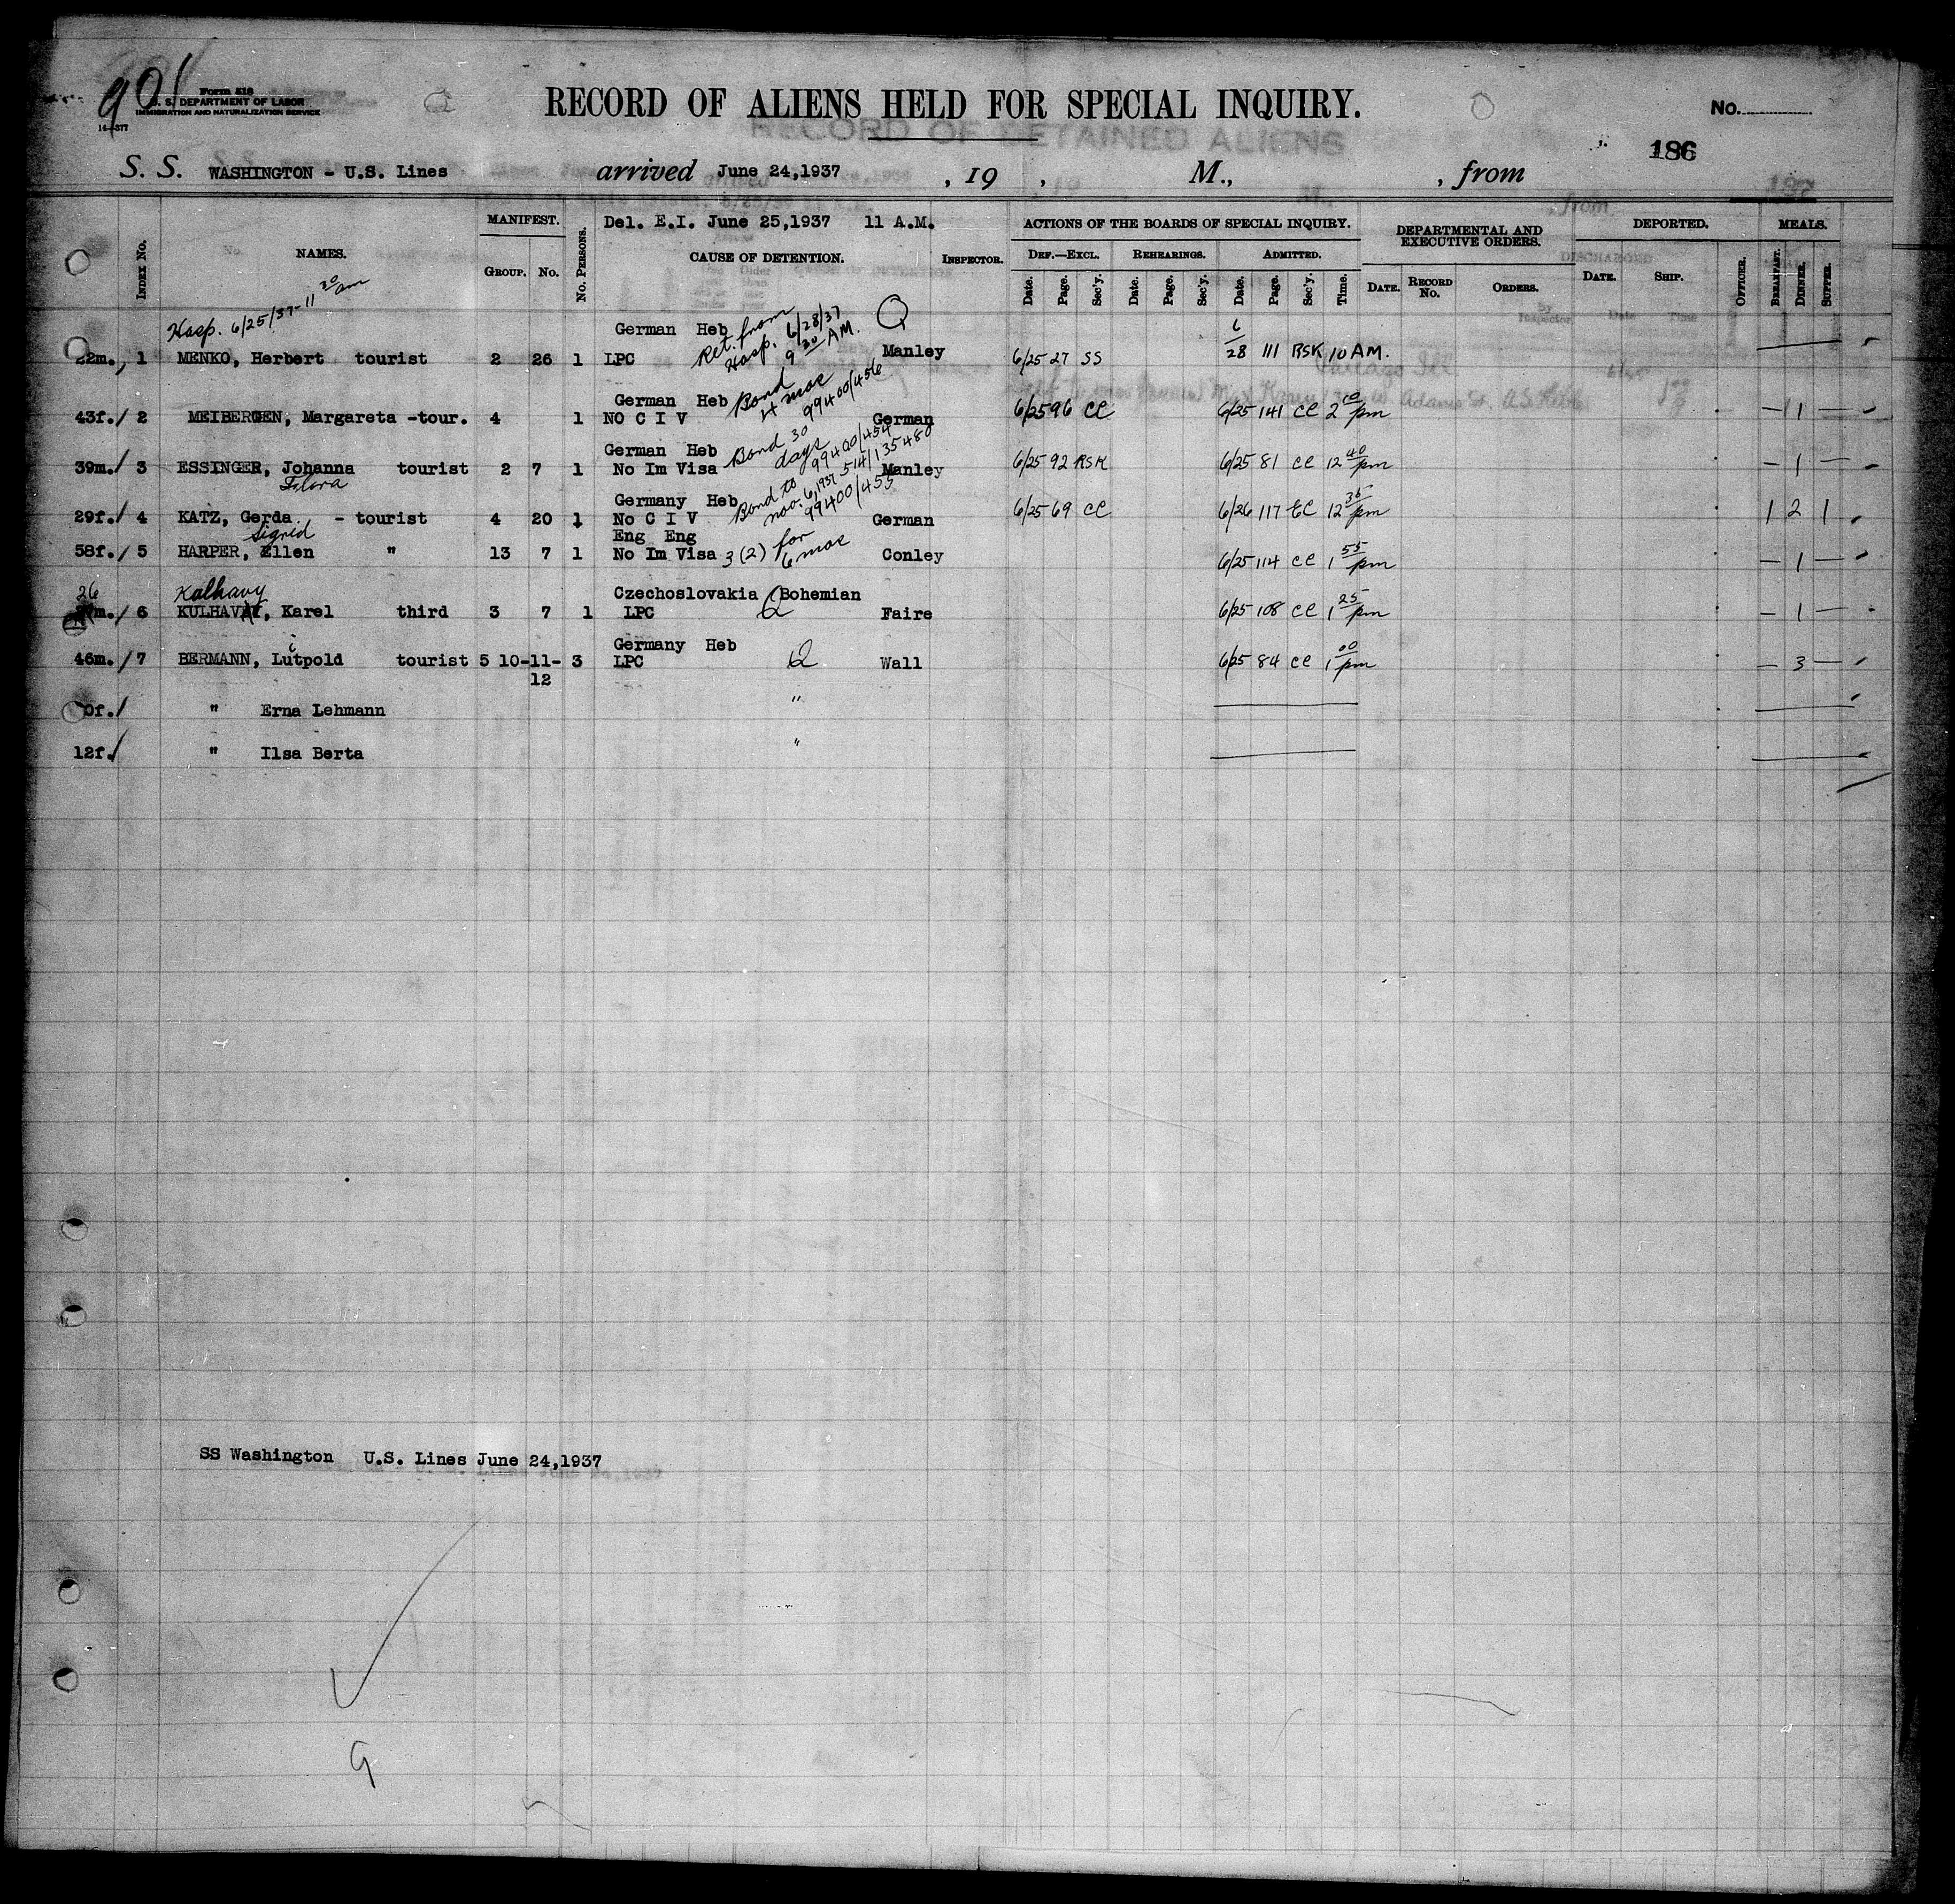 901
Form 518
U. S. DEPARTMENT OF LABOR
IMMIGRATION AND NATURALIZATION SERVICE
14-377
RECORD OF ALIENS HELD FOR SPECIAL INQUIRY.
No.
RECORD OF DETAINED ALIENS
186
S. S. WASHINGTON - U.S. Lines arrived June 24,1937 , 19 , M., , from
187
INDEX No. NAMES. MANIFEST. GROUP. No. No. PERSONS. Del. E.I. June 25,1937 11 A.M. CAUSE OF DETENTION. INSPECTOR. ACTIONS OF THE BOARDS OF SPECIAL INQUIRY. DEF.—EXCL. Date. Page. Sec'y. REHEARINGS. Date. Page. Sec'y. ADMITTED. Date. Page. Sec'y. Time. DEPARTMENTAL AND EXECUTIVE ORDERS. DATE. RECORD No. ORDERS. DEPORTED. DATE. SHIP. OFFICER. MEALS. BREAKFAST. DINNER. SUPPER.
Hosp. 6/25/37-11 30 am
German Heb Ret. from Hosp. 6/28/37 9 30 A.M.
22m., 1 MENKO, Herbert tourist 2 26 1 LPC Manley 6/25 27 SS 6/28 111 RSK 10 AM.
German Heb Bond 4 mos 99400/456
43f./ 2 MEIBERGEN, Margareta -tour. 4 1 NO C I V German 6/25 96 CC 6/25 141 CC 2 00 pm — 1 —
German Heb Bond 30 days 99400/454
39m./ 3 ESSINGER, Johanna tourist 2 7 1 No Im Visa Manley 6/25 92 RSK 6/25 81 CC 12 40 pm — 1 —
Flora
Germany Heb Bond to Nov. 6, 1937 99400/455
29f./ 4 KATZ, Gerda - tourist 4 20 1 No C I V German 6/25 69 CC 6/26 117 CC 12 35 pm 1 2 1
Signed
Eng Eng
58f./ 5 HARPER, Ellen " 13 7 1 No Im Visa 3 (2) for 6 mos Conley 6/25 114 CC 1 55 pm — 1 —
26 Kalhavy
Czechoslovakia Bohemian
m./ 6 KULHAV, Karel third 3 7 1 LPC Faire 6/25 108 CC 1 25 pm — 1 —
Germany Heb
46m./ 7 BERMANN, Lutpold tourist 5 10-11-12 3 LPC Wall 6/25 84 CC 1 00 pm — 3 —
0f./ " Erna Lehmann "
12f./ " Ilsa Berta "
SS Washington U.S. Lines June 24,1937
9